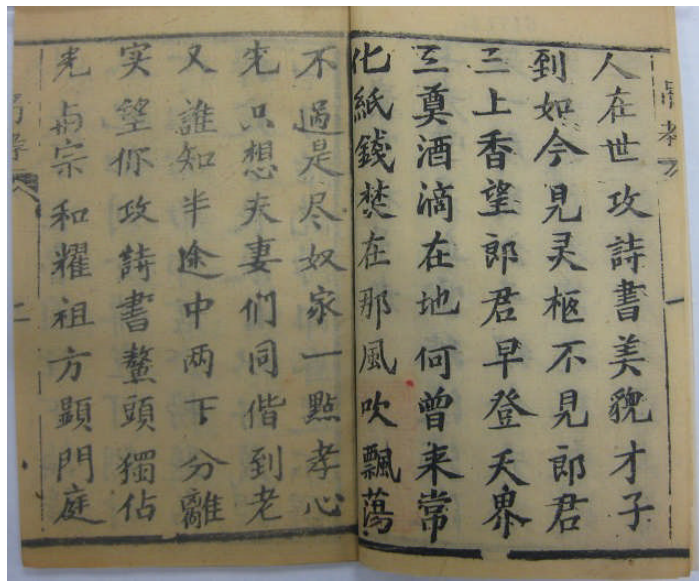 人在世攻詩書美貌才子
到如今見灵柩不見郎君
三上香望郎君早登天界
三奠酒滴在地何曾来常
化紙錢焚在那風吹飄蕩
不過是尽奴家一點孝心
先只想夫妻们同偕到老
又誰知半途中两下分離
实望你攻詩書鰲頭獨佔
光前宗和耀祖方顯門庭
一
二